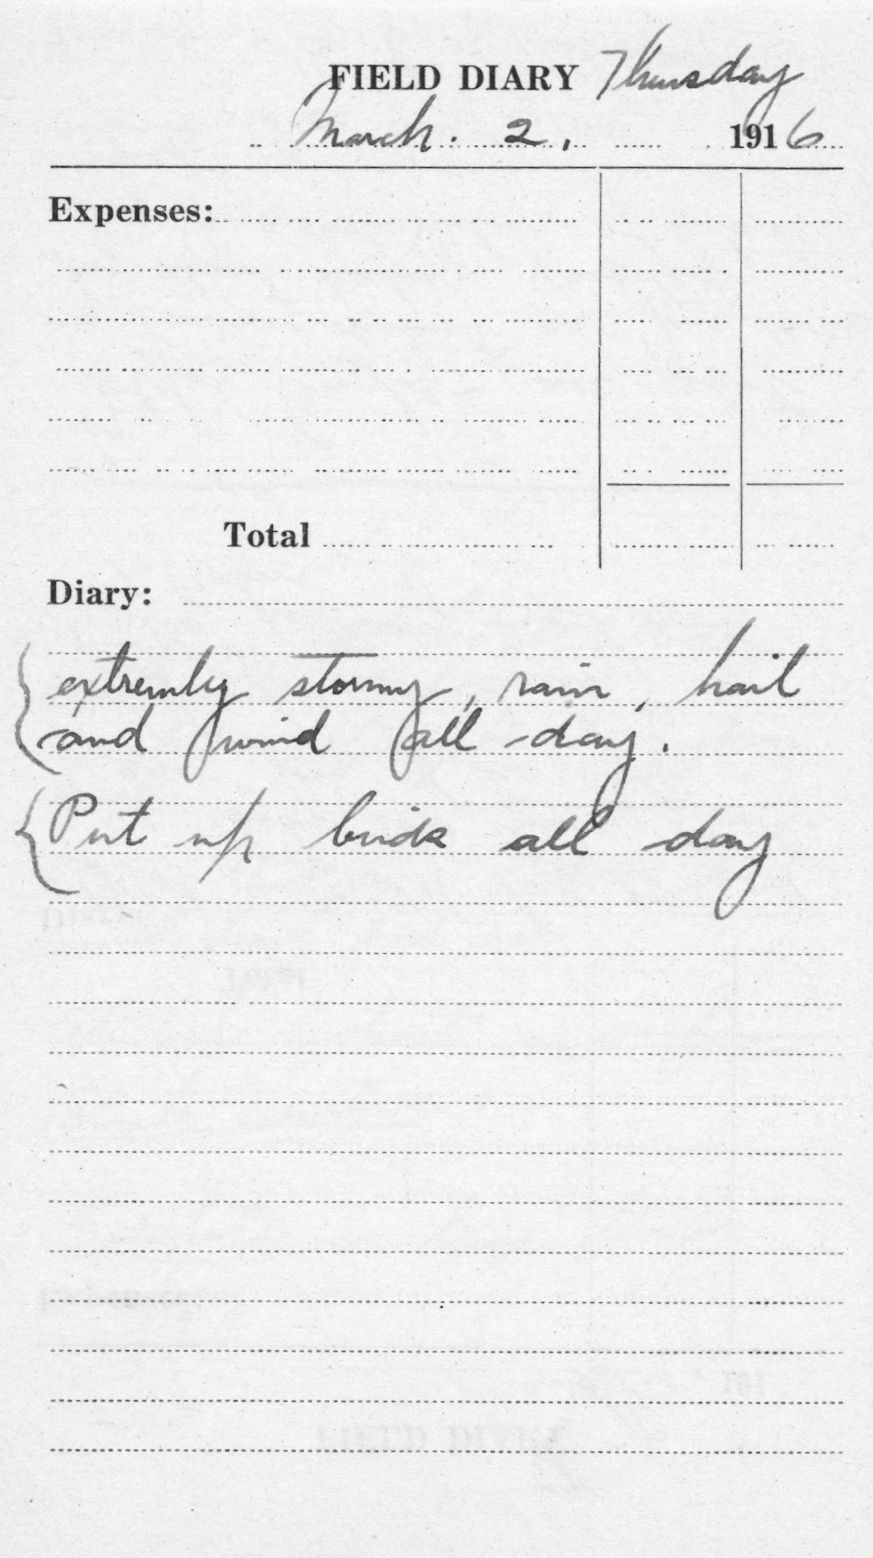 FIELD DIARY Thursday
March. 2, 1916
Expenses:
Total
Diary:
extremly stormy, rain, hail
and wind all day.
Put up birds all day